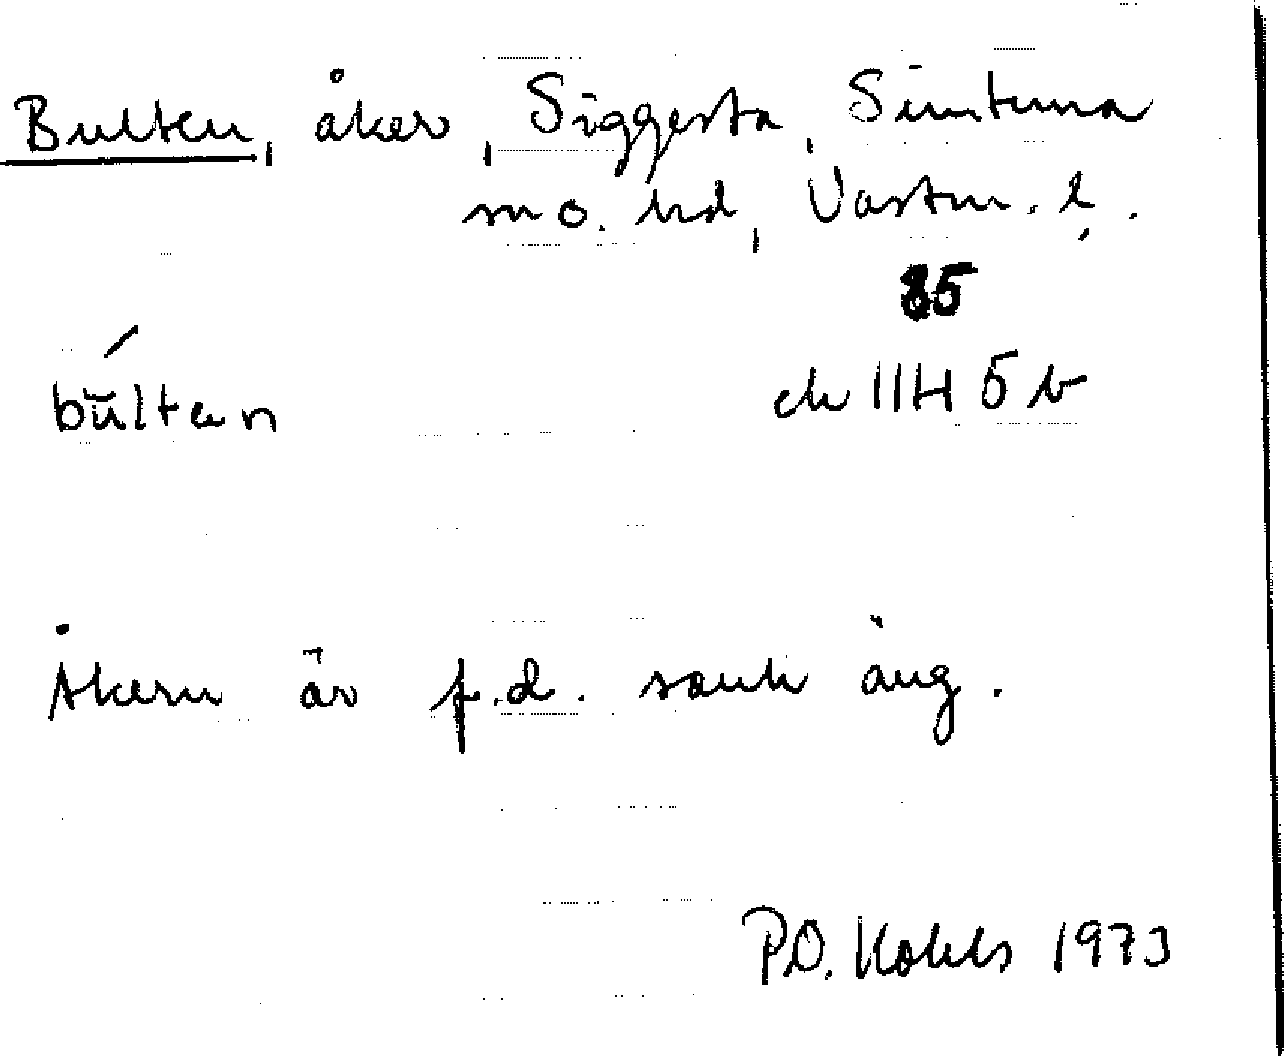 Bulten, åker, Siggesta, Simtuna
sn o. hd, Västm. l.
85
ek 11H 5 b
bŭ́lten
Åkern är f.d. sank äng.
P.O. 1973